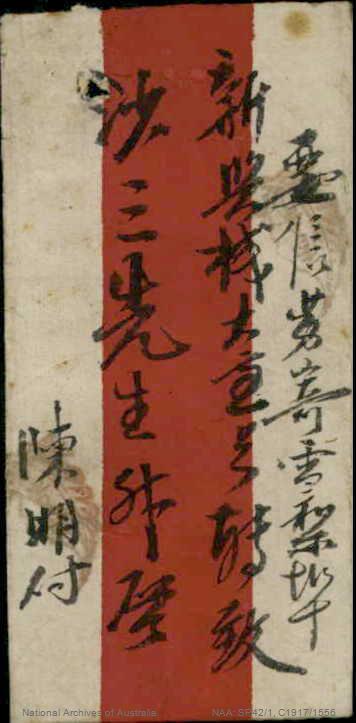 要信劳寄雪梨埠
新興棧大宝号轉致
沙三先生升啓
陳明付
National Archives of Australia NAA: SP42/1, C1917/1556